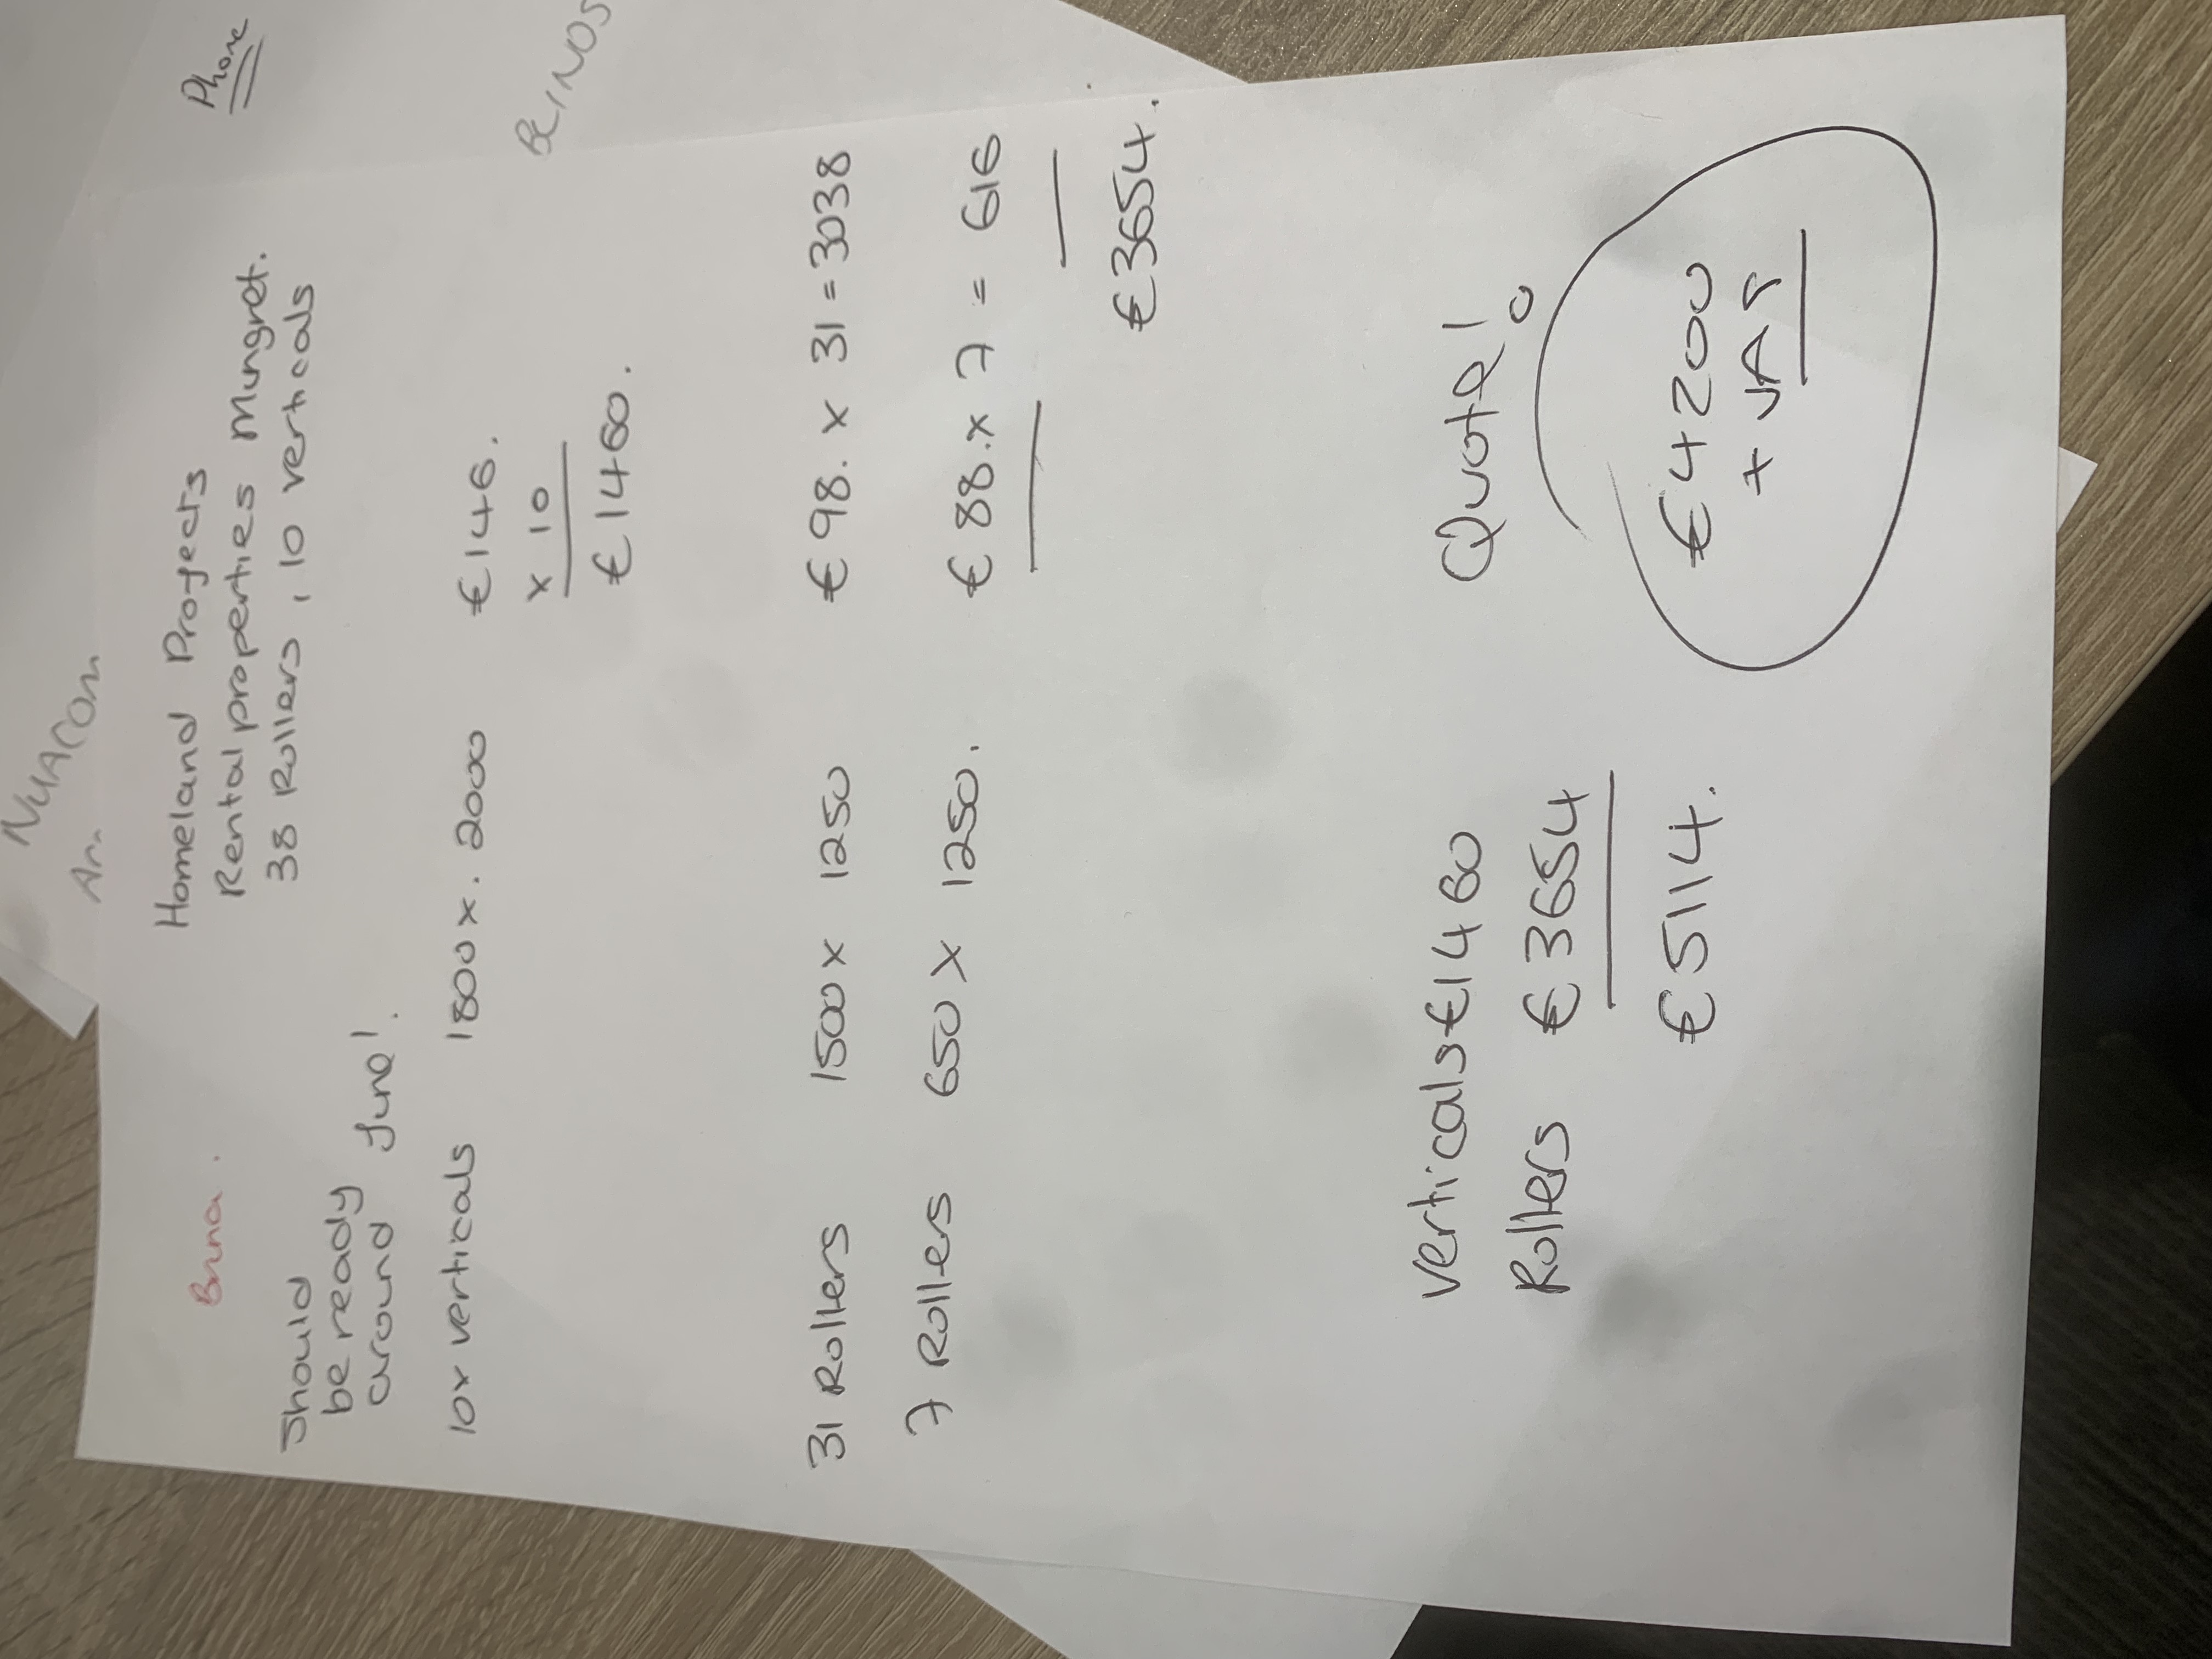 NUACOM
An
Phone
BLINDS
Bruna.
Homeland Projects
Rental properties Mungret.
38 Rollers, 10 verticals
Should
be ready
around June!.
10x verticals 1800x. 2000 €146.
x 10
€1460.
31 Rollers 1500 x 1250 €98. x 31 = 3038
7 Rollers 650 x 1250. €88. x 7 = 616
€3654.
verticals €1460
Rollers €3654
€5114.
Quote!
€4200
+ VAT